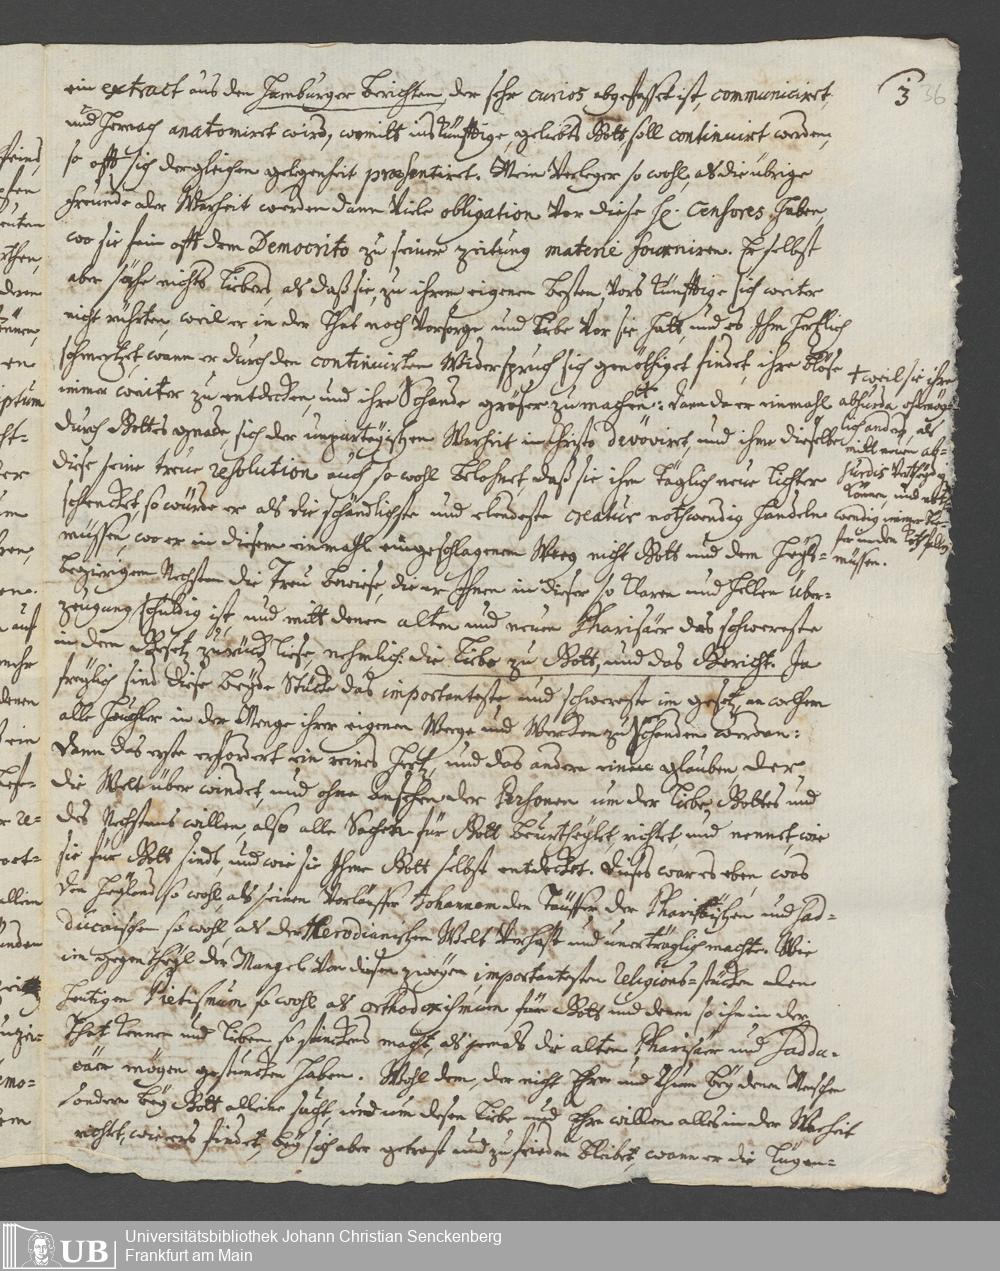 3 36
ein extract aus den Hamburger Berichten, der sehr curios abgefasset ist, communiciret,
und hernach anatomiret wird, womitt ins künfftige, geliebts Gott, soll continuirt werden,
so offt sich dergleichen gelegenheit praesentiret. Mein Verleger so wohl, als die übrige
freunde der Warheit werden dann viele obligation vor diese H. Censores haben,
wo sie fein offt dem Democrito zu seiner zeitung materie fourniren. Er selbst
aber sähe nichts liebers, als daß sie, zu ihrem eigenen besten, vors künfftige sich weiter
nicht rührten, weil er in der that noch Vorsorge und liebe vor sie hatt, und es Ihm hertzlich
schmertzet, wann er durch den continuirten Widerspruch sich genöthiget findet, ihre blöse
immer weiter zu entdecken, und ihre Schande gröser zu machen †: dann da er einmahl
durch Gottes gnade, sich der unparteyischen Warheit in Christo devoviret, und ihm dieselbe
diese seine treue resolution auch so wohl belohnet, daß sie ihm täglich neue lichter
schencket, so würde er als die schändlichste und elendeste creatur nothwendig handeln
müssen, wo er in diesem einmahl eingeschlagenem Weeg nicht Gott und dem
begierigen Nechsten die Treu bewiese, die er Ihnen in dieser so klaren und hellen über-
zeugung schuldig ist, und mitt denen alten und neuen Pharisäer das schwereste
in dem Gesetz zurück liese, nehmlich: die liebe zu Gott, und das Gericht. Ja
freylich sind diese beyde Stücke das importanteste und schwereste im gesetz, an welchem
alle heuchler in der Menge ihrer eigenen Weege und Wercken zu Schanden werden:
Dann das erste erfordert ein reines hertz, und das andere einen glauben, der
die Welt über windet, und ohne ansehen der Personen um der liebe Gottes und
des Nechstens willen, also alle Sachen für Gott beurtheylet, richtet, und nennet, wie
sie für Gott sind, und wie sie Ihme Gott selbst entdecket. Dieses war es eben, was
den Heyland so wohl, als seinen Vorläuffer Johannem den Täuffer der Pharisäischen und Sad-
ducäischen so wohl, als der Herodianischen Welt verhast und unerträglich machte. Wie
im gegentheyl der Mangel von diesen zweyen importantesten Religions-stücken den
heutigen Pietismum so wohl als orthodoxismum für Gott und denen so ihn in der
That kennen und lieben so stinckend macht, als jemals die alten Pharisäer und Saddu-
cäer mögen gestuncken haben. Wohl dem, der nicht Ehre und Ruhm bey denen Menschen
sondern bey Gott alleine sucht, und um desen liebe und Ehre willen alles in der Warheit
richtet, wie ers findet, bey sich aber getrost und zu frieden bleibet, wann er die Lügen-
† weil sie ihre
absurda ohnmög-
lich anders, als
mitt neuen ab-
surdis
können, und noth-
wendig immer tie-
fer in den
müssen.
Universitätsbibliothek Johann Christian Senckenberg
Frankfurt am Main
UB